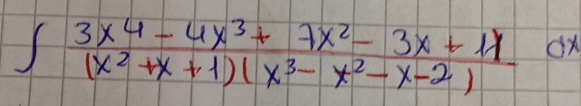 ∫ (3x⁴ - 4x³ + 7x² - 3x + 11) / ((x² + x + 1)(x³ - x² - x - 2)) dx